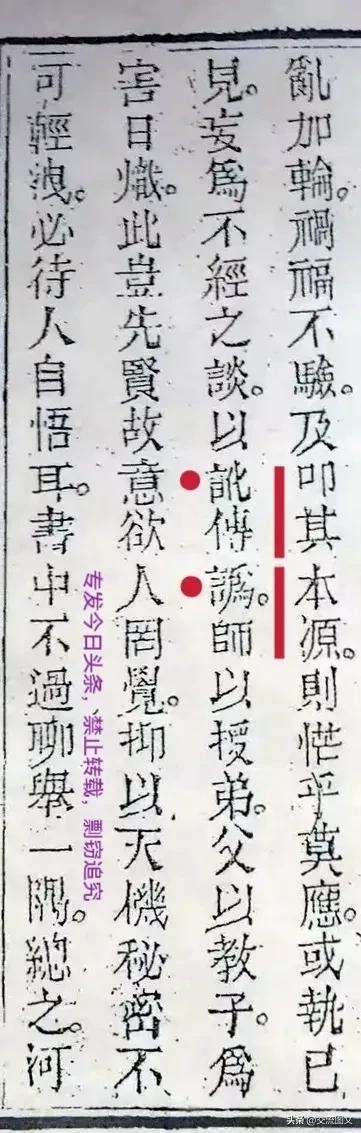 亂加輪。禍福不驗。及叩其本源。則恾乎莫應。或執已
見。妄爲不經之談。以訛傳譌。師以授弟。父以教子。爲
害日熾。此豈先賢故意欲人罔覺。抑以天機秘密不
可輕洩。必待人自悟耳。書中不過聊舉一隅。總之。河
专发今日头条，禁止转载，剽窃追究
头条@交流图文